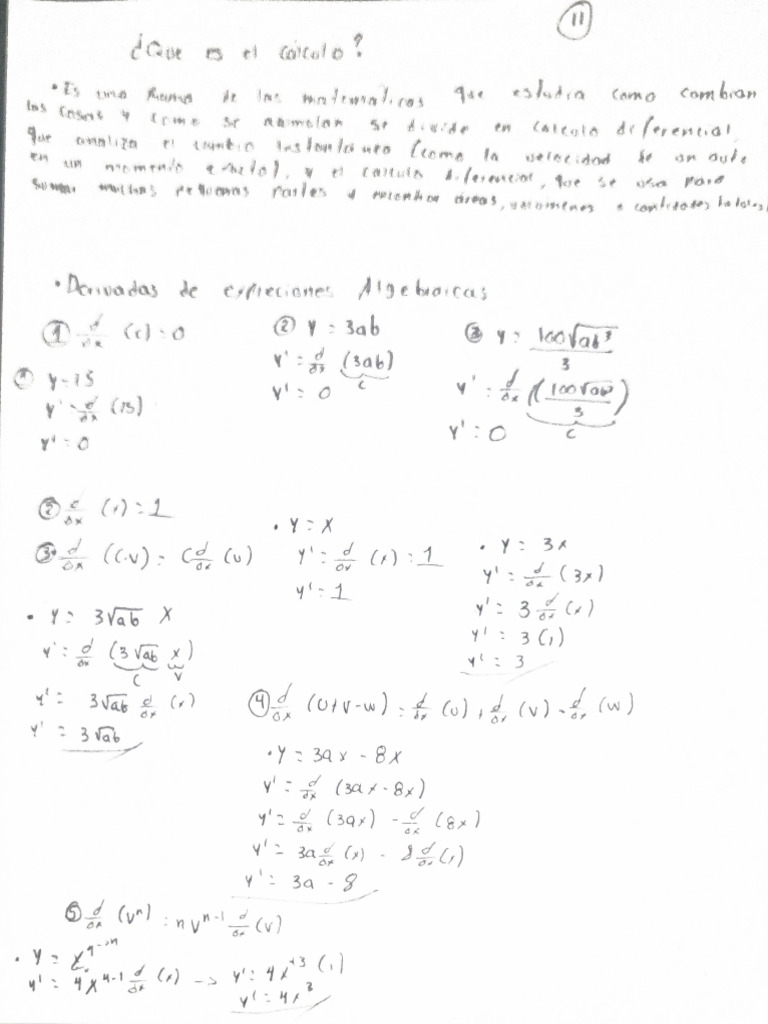 11
¿Que es el cálculo?
• Es una Rama de las matematicas que estudia como cambian
las cosas y como se acumulan se divide en calculo diferencial
que analiza el cambio instantaneo (como la velocidad de un auto
en un momento exacto), y el calculo diferencial, que se usa para
sumar muchas pequeñas partes y encontrar áreas, o cantidades totales)
• Derivadas de expreciones Algebraicas
① d/dx (c) = 0
① y = 15
y' = d/dx (15)
y' = 0
② y = 3ab
y' = d/dx (3ab)
c
y' = 0
③ y = 100√ab³/3
y' = d/dx (100√ab³/3)
c
y' = 0
② d/dx (x) = 1
• y = x
y' = d/dx (x) = 1
y' = 1
③ d/dx (C·V) = C d/dx (V)
• y = 3x
y' = d/dx (3x)
y' = 3 d/dx (x)
y' = 3 (1)
y' = 3
• y = 3√ab x
y' = d/dx (3√ab x)
c v
y' = 3√ab d/dx (x)
y' = 3√ab
④ d/dx (U+V-W) = d/dx (U) + d/dx (V) - d/dx (W)
• y = 3ax - 8x
y' = d/dx (3ax - 8x)
y' = d/dx (3ax) - d/dx (8x)
y' = 3a d/dx (x) - 8 d/dx (x)
y' = 3a - 8
⑤ d/dx (Vⁿ) = n Vⁿ⁻¹ d/dx (V)
• y = x⁴→ⁿ
y' = 4x⁴⁻¹ d/dx (x) → y' = 4x⁺³ (1)
y' = 4x³